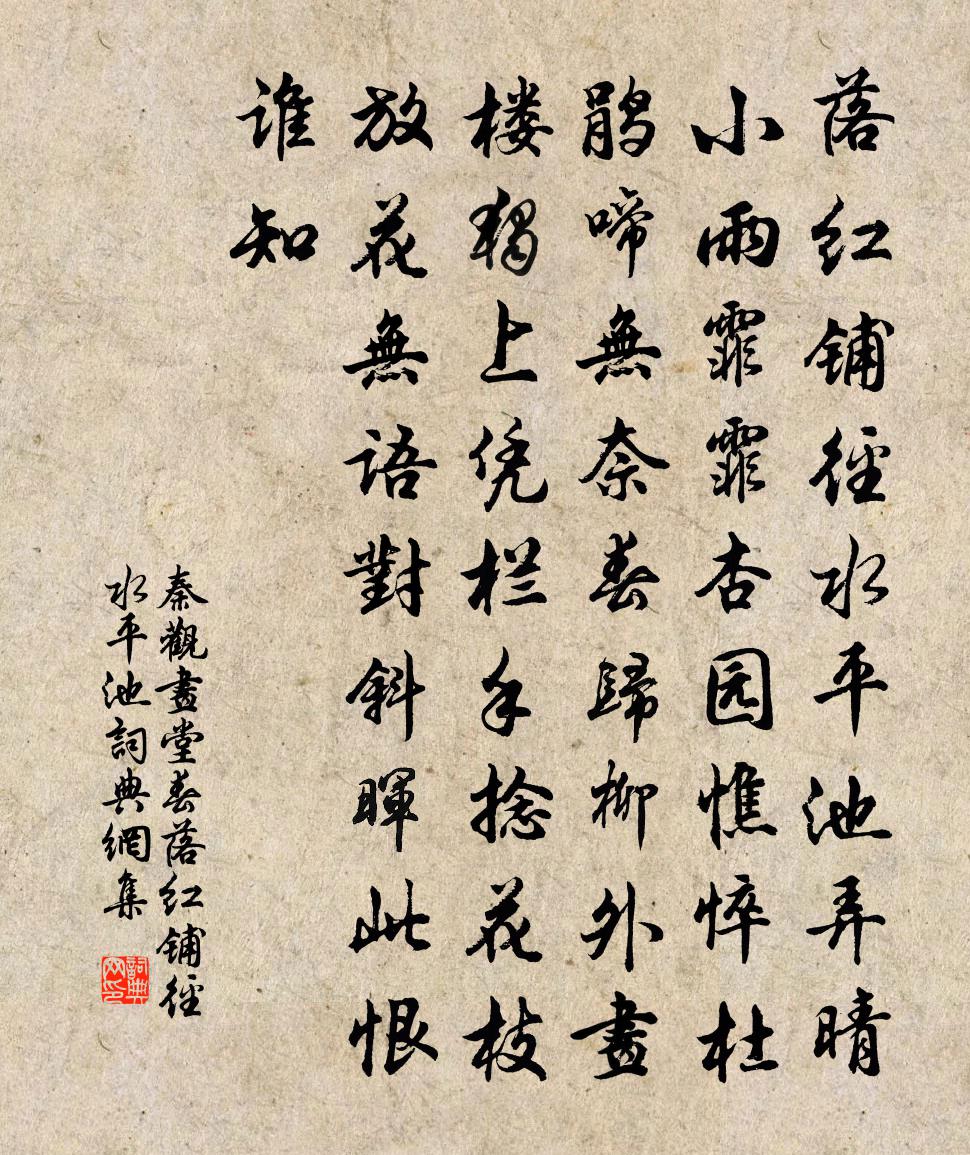 落红铺径水平池弄晴
小雨霏霏杏园憔悴杜
鹃啼無奈春歸柳外畫
楼独上凭栏手捻花枝
放花無语對斜暉此恨
谁知
秦觀畫堂春落红铺径
水平池詞典網集
詞典网印